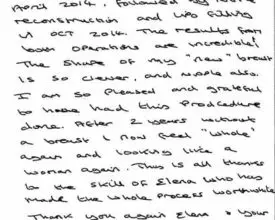 April 2014, followed by more
reconstruction and lipo filling
in OCT 2014. The results from
both operations are incredible!
The shape of my "new" breast
is so clever, and nipple also.
I am so pleased and grateful
to have had this procedure
done. After 2 years without
a breast I now feel "whole"
again and looking like a
woman again. This is all thanks
to the skill of Elena who has
made the whole process worthwhile
Thank you again Elena & your